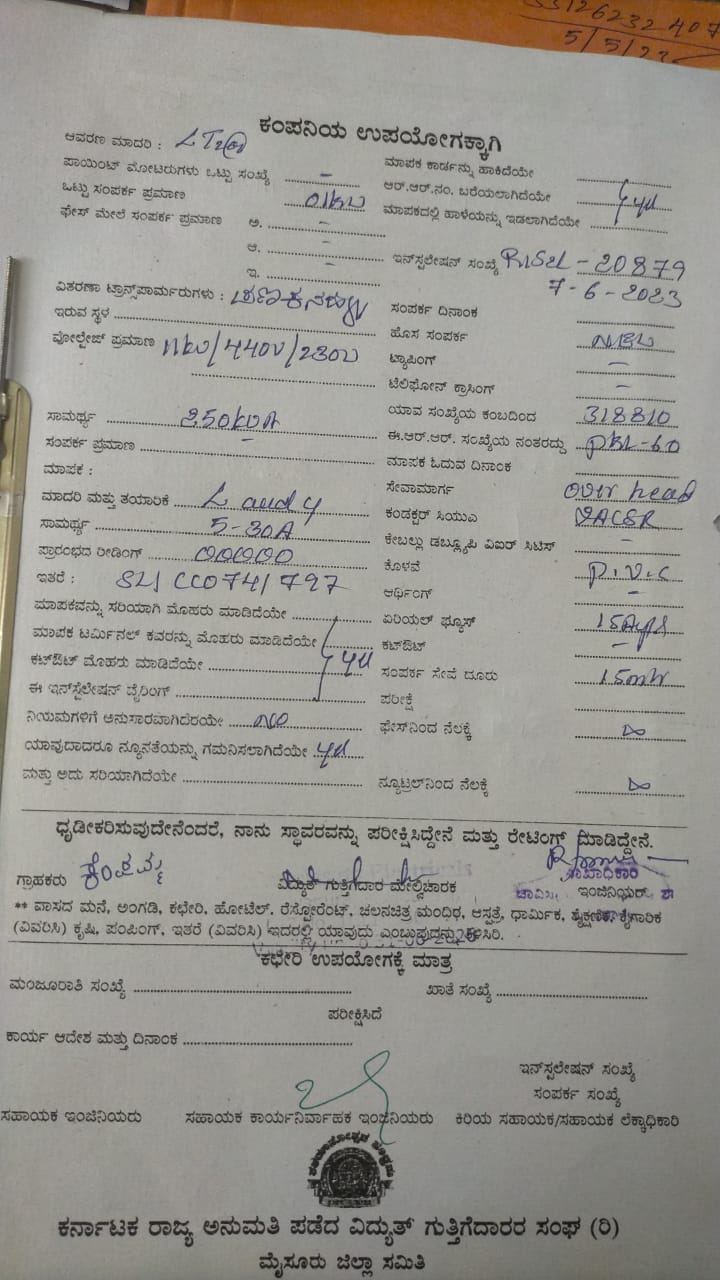 33126232407
5/5/22
ಕಂಪನಿಯ ಉಪಯೋಗಕ್ಕಾಗಿ
ಆವರಣ ಮಾದರಿ :
ಪಾಯಿಂಟ್ ಮೋಟರುಗಳು ಒಟ್ಟು ಸಂಖ್ಯೆ -
ಒಟ್ಟು ಸಂಪರ್ಕ ಪ್ರಮಾಣ
ಫೇಸ್ ಮೇಲೆ ಸಂಪರ್ಕ ಪ್ರಮಾಣ ಅ. -
ಆ. -
ಇ. -
ವಿತರಣಾ ಟ್ರಾನ್ಸ್‌ಪಾರ್ಮರುಗಳು :
ಇರುವ ಸ್ಥಳ
ವೋಲ್ಟೇಜ್ ಪ್ರಮಾಣ 11kv/440v/230v
ಸಾಮರ್ಥ್ಯ 250kVA
ಸಂಪರ್ಕ ಪ್ರಮಾಣ -
ಮಾಪಕ :
ಮಾದರಿ ಮತ್ತು ತಯಾರಿಕೆ L and y
ಸಾಮರ್ಥ್ಯ 5-30A
ಪ್ರಾರಂಭದ ರೀಡಿಂಗ್ 00000
ಇತರೆ :
ಮಾಪಕವನ್ನು ಸರಿಯಾಗಿ ಮೊಹರು ಮಾಡಿದೆಯೇ
ಮಾಪಕ ಟರ್ಮಿನಲ್ ಕವರನ್ನು ಮೊಹರು ಮಾಡಿದೆಯೇ
ಕಟ್‌ಔಟ್ ಮೊಹರು ಮಾಡಿದೆಯೇ
ಈ ಇನ್‌ಸ್ಟಲೇಷನ್ ವೈರಿಂಗ್
ನಿಯಮಗಳಿಗೆ ಅನುಸಾರವಾಗಿದೆರಯೇ NO
ಯಾವುದಾದರೂ ನ್ಯೂನತೆಯನ್ನು ಗಮನಿಸಲಾಗಿದೆಯೇ
ಮತ್ತು ಅದು ಸರಿಯಾಗಿದೆಯೇ
ಮಾಪಕ ಕಾರ್ಡನ್ನು ಹಾಕಿದೆಯೇ
ಆರ್.ಆರ್.ನಂ. ಬರೆಯಲಾಗಿದೆಯೇ
ಮಾಪಕದಲ್ಲಿ ಹಾಳೆಯನ್ನು ಇಡಲಾಗಿದೆಯೇ
ಇನ್‌ಸ್ಟಲೇಷನ್ ಸಂಖ್ಯೆ 20879
7-6-2023
ಸಂಪರ್ಕ ದಿನಾಂಕ
ಹೊಸ ಸಂಪರ್ಕ
ಟ್ಯಾಪಿಂಗ್ -
ಟೆಲಿಫೋನ್ ಕ್ರಾಸಿಂಗ್ -
ಯಾವ ಸಂಖ್ಯೆಯ ಕಂಬದಿಂದ 318810
ಈ.ಆರ್.ಆರ್. ಸಂಖ್ಯೆಯ ನಂತರದ್ದು PBL-60
ಮಾಪಕ ಓದುವ ದಿನಾಂಕ
ಸೇವಾಮಾರ್ಗ over head
ಕಂಡಕ್ಟರ್ ಸಿಯುಎ
ಕೇಬಲ್ಲು ಡಬ್ಲ್ಯೂಪಿ ವಿಐಆರ್ ಸಿಟಿಸ್ -
ಕೊಳವೆ P.V.C
ಆರ್ಥಿಂಗ್ -
ಏರಿಯಲ್ ಫ್ಯೂಸ್ 15Amps
ಕಟ್‌ಔಟ್ -
ಸಂಪರ್ಕ ಸೇವೆ ದೂರು 15mtr
ಪರೀಕ್ಷೆ
ಫೇಸ್‌ನಿಂದ ನೆಲಕ್ಕೆ ∞
ನ್ಯೂಟ್ರಲ್‌ನಿಂದ ನೆಲಕ್ಕೆ ∞
ಧೃಡೀಕರಿಸುವುದೇನೆಂದರೆ, ನಾನು ಸ್ಥಾವರವನ್ನು ಪರೀಕ್ಷಿಸಿದ್ದೇನೆ ಮತ್ತು ರೇಟಿಂಗ್ ಮಾಡಿದ್ದೇನೆ.
ಗ್ರಾಹಕರು ಕೆಂಪಮ್ಮ ವಿದ್ಯುತ್ ಗುತ್ತಿಗೆದಾರ ಮೇಲ್ವಿಚಾರಕ ಇಂಜಿನಿಯರ್
** ವಾಸದ ಮನೆ, ಅಂಗಡಿ, ಕಛೇರಿ, ಹೋಟೆಲ್, ರೆಸ್ಟೋರೆಂಟ್, ಚಲನಚಿತ್ರ ಮಂದಿಧ, ಆಸ್ಪತ್ರೆ, ಧಾರ್ಮಿಕ, ಶೈಕ್ಷಣಿಕ, ಕೈಗಾರಿಕ
(ವಿವರಿಸಿ) ಕೃಷಿ, ಪಂಪಿಂಗ್, ಇತರೆ (ವಿವರಿಸಿ) ಇದರಲ್ಲಿ ಯಾವುದು ಎಂಬುವುದನ್ನು ತಿಳಿಸಿರಿ.
ಕಛೇರಿ ಉಪಯೋಗಕ್ಕೆ ಮಾತ್ರ
ಮಂಜೂರಾತಿ ಸಂಖ್ಯೆ ಖಾತೆ ಸಂಖ್ಯೆ
ಪರೀಕ್ಷಿಸಿದೆ
ಕಾರ್ಯ ಆದೇಶ ಮತ್ತು ದಿನಾಂಕ
ಇನ್‌ಸ್ಪಲೇಷನ್ ಸಂಖ್ಯೆ
ಸಂಪರ್ಕ ಸಂಖ್ಯೆ
ಸಹಾಯಕ ಇಂಜಿನಿಯರು ಸಹಾಯಕ ಕಾರ್ಯನಿರ್ವಾಹಕ ಇಂಜಿನಿಯರು ಕಿರಿಯ ಸಹಾಯಕ/ಸಹಾಯಕ ಲೆಕ್ಕಾಧಿಕಾರಿ
ಕರ್ನಾಟಕ ರಾಜ್ಯ ಅನುಮತಿ ಪಡೆದ ವಿದ್ಯುತ್ ಗುತ್ತಿಗೆದಾರರ ಸಂಘ (ರಿ)
ಮೈಸೂರು ಜಿಲ್ಲಾ ಸಮಿತಿ